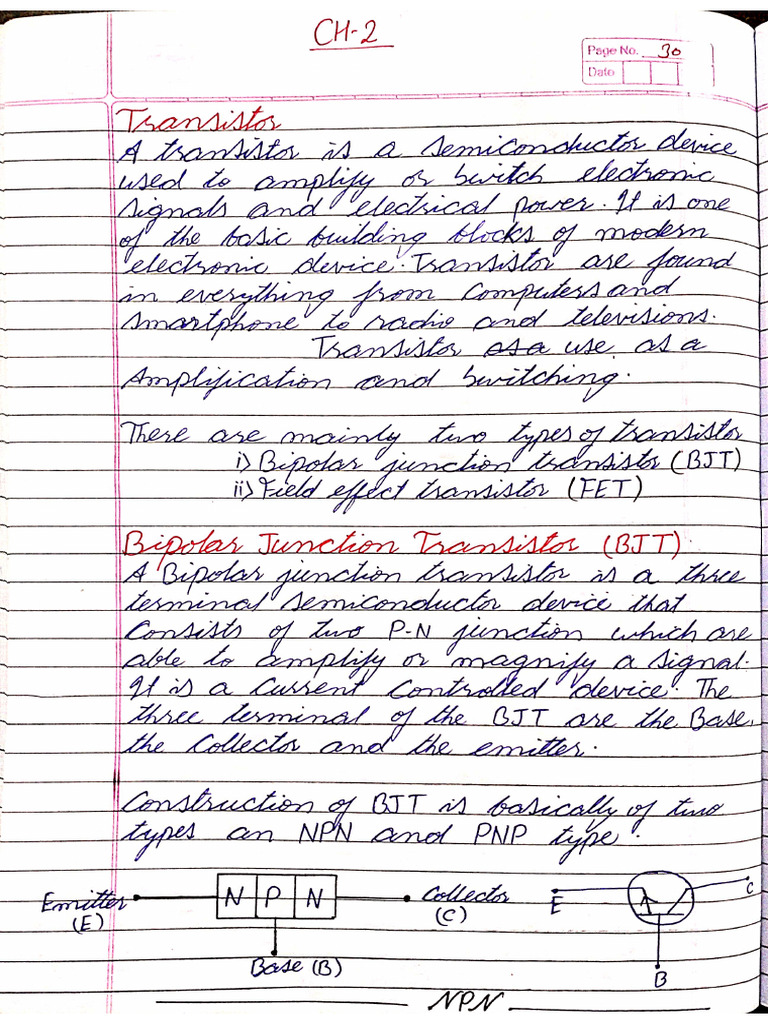 CH-2
Page No. 30
Date
Transistor
A transistor is a semiconductor device
used to amplify or switch electronic
signals and electrical power. It is one
of the basic building blocks of modern
electronic device. Transistor are found
in everything from computers and
smartphone to radio and televisions.
Transistor as a use as a
Amplification and switching.
There are mainly two types of transistor
i) Bipolar junction transistor (BJT)
ii) Field effect transistor (FET)
Bipolar Junction Transistor (BJT).
A Bipolar junction transistor is a three
terminal semiconductor device that
consists of two P-N junction which are
able to amplify or magnify a signal.
It is a current controlled device. The
three terminal of the BJT are the Base,
the collector and the emitter.
Construction of BJT is basically of two
types an NPN and PNP type.
Emitter (E) N P N Collector (C) E C
Base (B) B
NPN